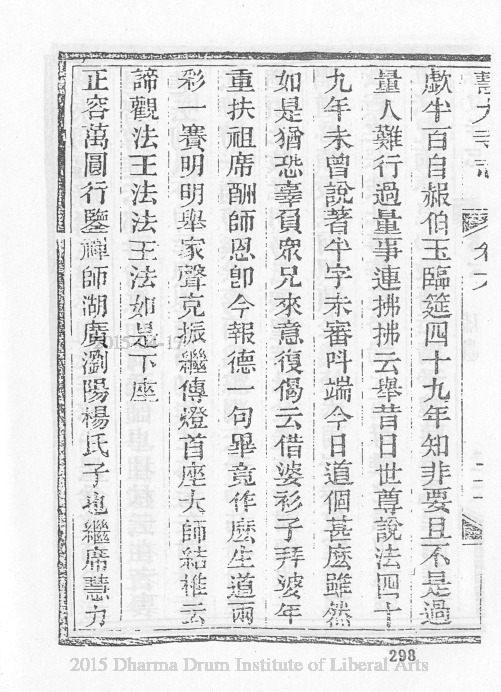 慧力寺志 卷六
歔半百自赧伯玉臨筵四十九年知非要且不是過
量人難行過量事連拂拂云舉昔日世尊說法四十
九年未曾說著半字未審叫端今日道個甚麼雖然
如是猶恐辜負眾兄來意復偈云借婆衫子拜婆年
重扶祖席酬師恩卽今報德一句畢竟作麼生道兩
彩一賽明明舉家聲克振繼傳燈首座大師結椎云
諦觀法王法法王法如是下座
正容萬圓行鑒禪師湖廣瀏陽楊氏子也繼席慧力
298
2015 Dharma Drum Institute of Liberal Arts